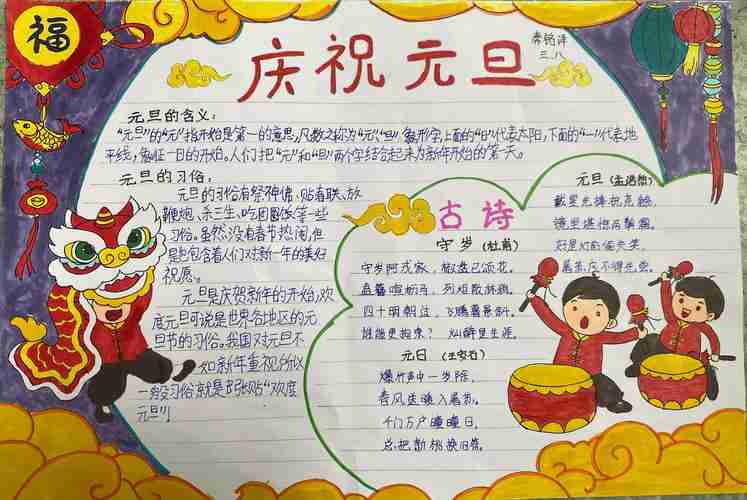 福
庆祝元旦
三.八
元旦的含义:
"元旦"的"元"指开始是第一的意思,凡数之称为"元","旦"象形字,上面的"日"代表太阳,下面的"一"代表地
平线,象征一日的开始。人们把"元"和"旦"两个字结合起来为新年开始的第一天。
元旦的习俗:
元旦的习俗有祭神佛、贴春联、放
鞭炮、杀三生、吃团圆饭等一些
习俗。虽然没有春节热闹,但
是包含着人们对新一年的美好
祝愿。
元旦是庆贺新年的开始,欢
度元旦可说是世界各地区的元
旦节的习俗。我国对元旦不
如新年重视所以
一般习俗就是张贴"欢度
元旦"!
古诗
守岁(杜甫)
守岁阿戎家,椒盘已颂花。
盍簪喧枥马,列炬散林鸦。
四十明朝过,飞腾暮景斜。
谁能更拘束?烂醉是生涯。
元日(王安石)
爆竹声中一岁除,
春风送暖入屠苏。
千门万户曈曈日,
总把新桃换旧符。
元旦(孟浩然)
戴星先捧祝尧觞,
镜里堪惊两鬓霜。
好是灯前偷失笑,
屠苏应不得先尝。